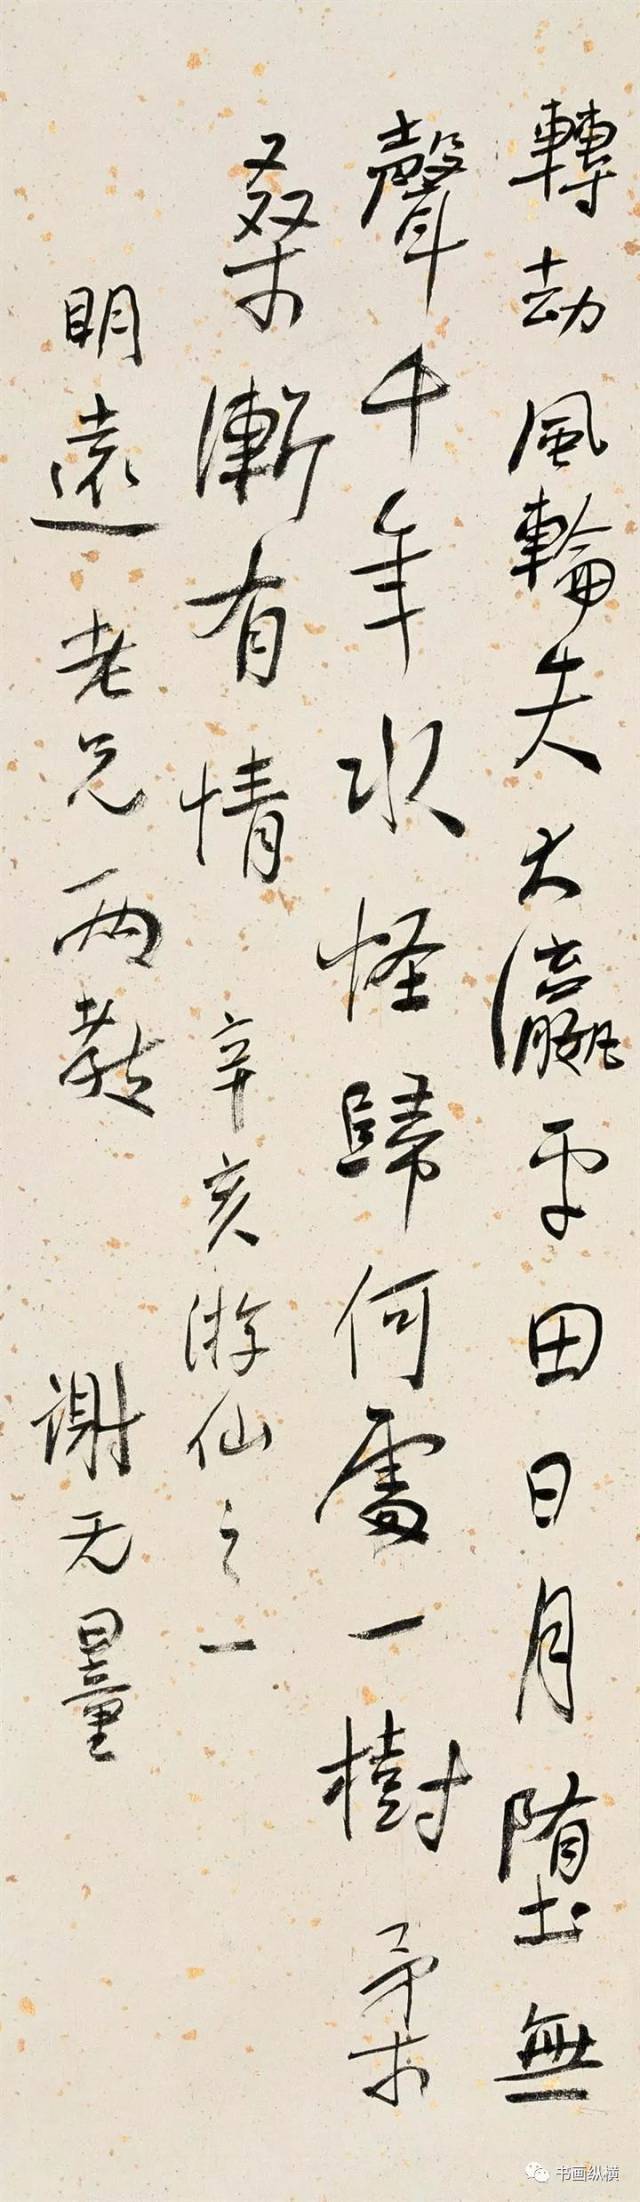 轉劫風輪失大瀛平田日月墮無
聲千年水怪歸何處一樹柔
桑漸有情 辛亥游仙之一
明遠老兄兩教 謝无量
书画纵横